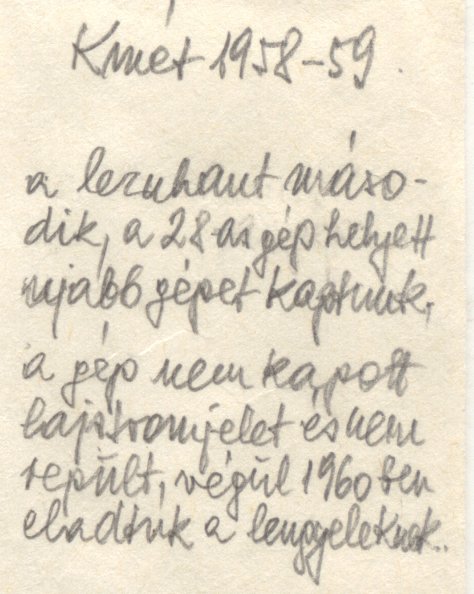 Kmét 1958-59.
a lezuhant máso-
dik, a 28-as gép helyett
ujabb gépet kaptunk,
a gép nem kapott
lajstromjelet és nem
repült, végül 1960 ben
eladtuk a lengyeleknek..